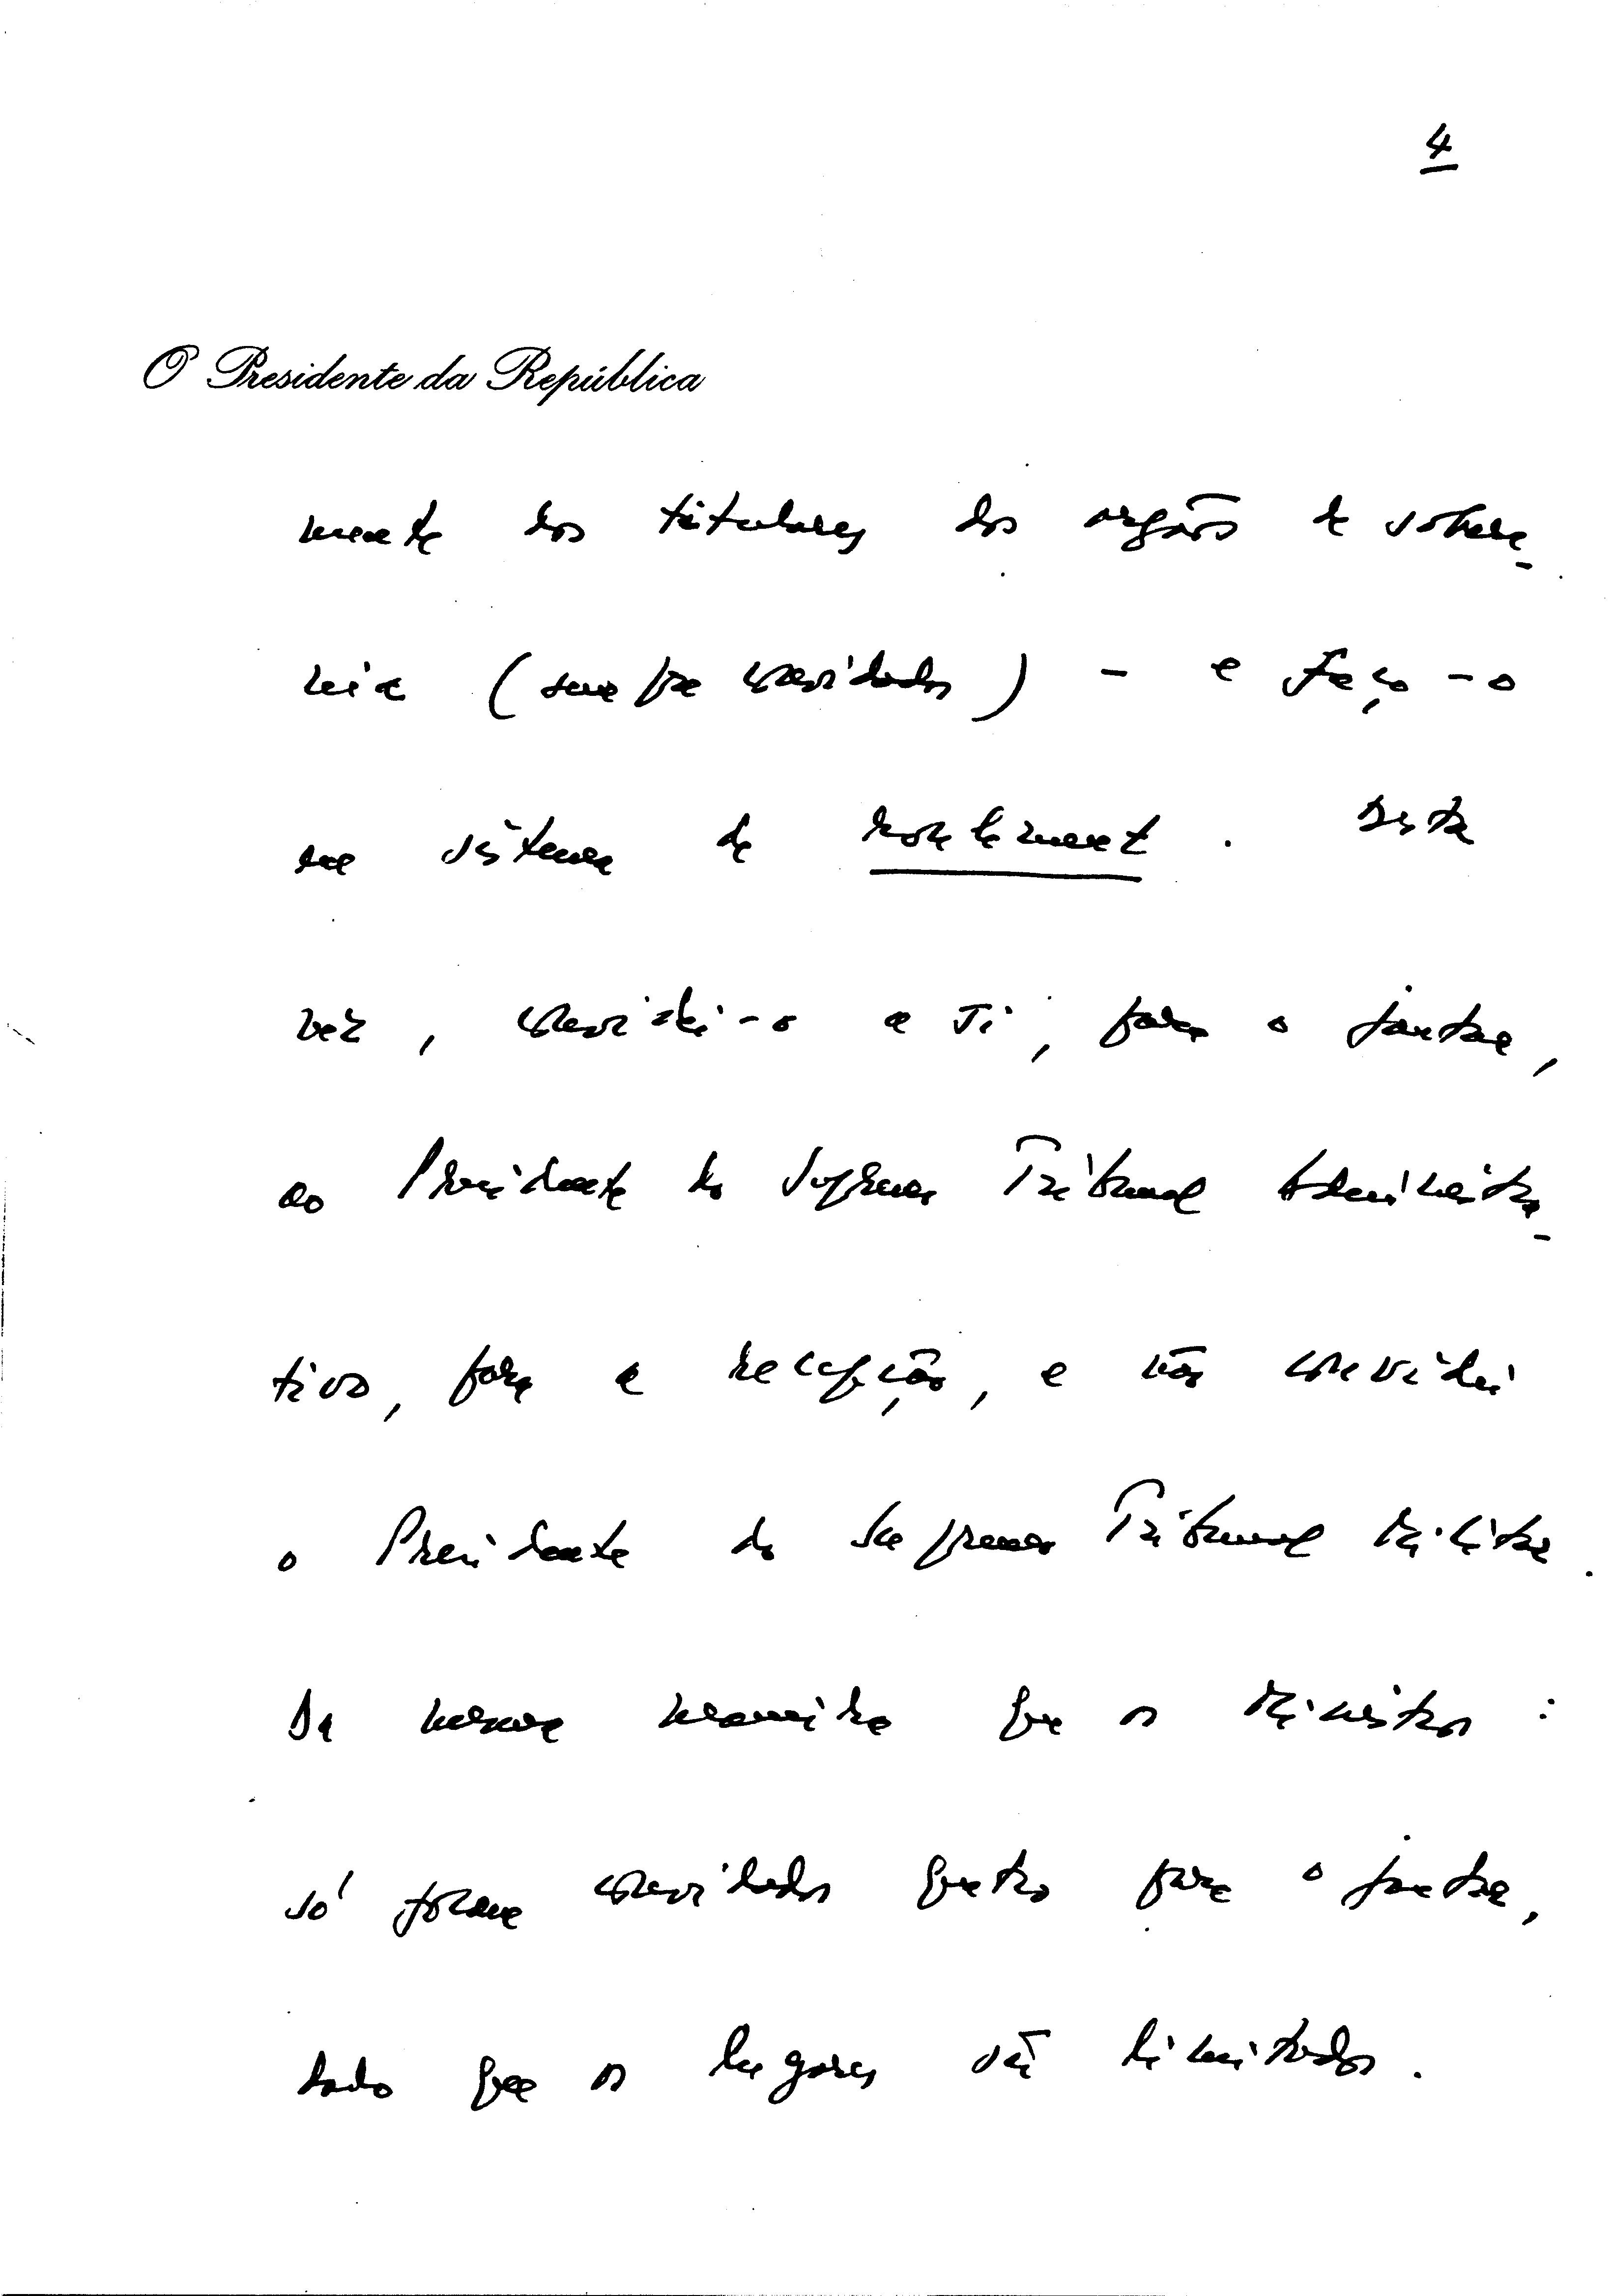 4
O Presidente da República
mente dos titulares dos orgãos de sobera-
nia (sempre convidados) – e faço-o
em sistema de roulement. Desta
vez, convidei-o a si, para o jantar,
ao Presidente do Supremo Tribunal Administra-
tivo, para a recepção, e não convidei
o Presidente do Supremo Tribunal Militar.
Da mesma maneira que os Ministros:
só foram convidados quatro para o jantar,
dado que os lugares são limitados.